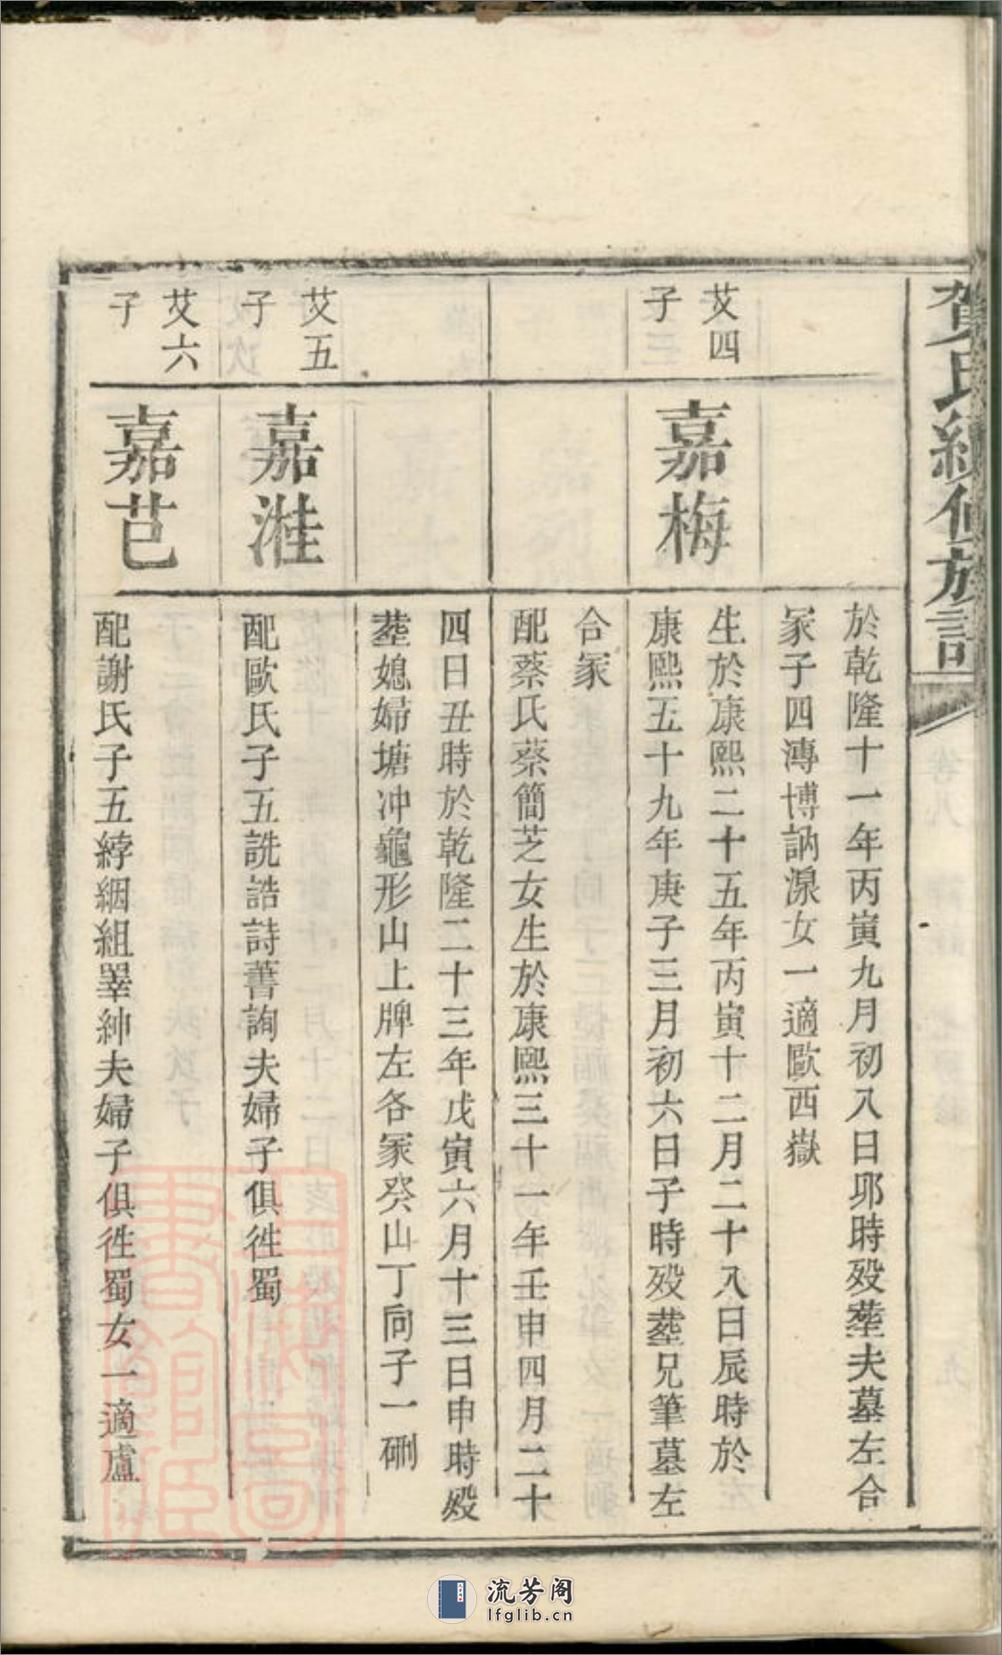 賀氏續修族譜
於乾隆十一年丙寅九月初八日卯時歿塟夫墓左合
冢子四溥博訥湶女一適歐西嶽
艾四子
嘉梅
生於康熙二十五年丙寅十二月二十八日辰時於
康熙五十九年庚子三月初六日子時歿塟兄筆墓左
合冢
配蔡氏蔡簡芝女生於康熙三十一年壬申四月二十
四日丑時於乾隆二十三年戊寅六月十三日申時歿
塟媳婦塘冲龜形山上牌左各冢癸山丁向子一硎
艾五子
嘉溎
配歐氏子五詵誥詩蓍詢夫婦子俱徃蜀
艾六子
嘉芑
配謝氏子五綍絪組睪紳夫婦子俱徃蜀女一適盧
流芳阁
lfglib.cn